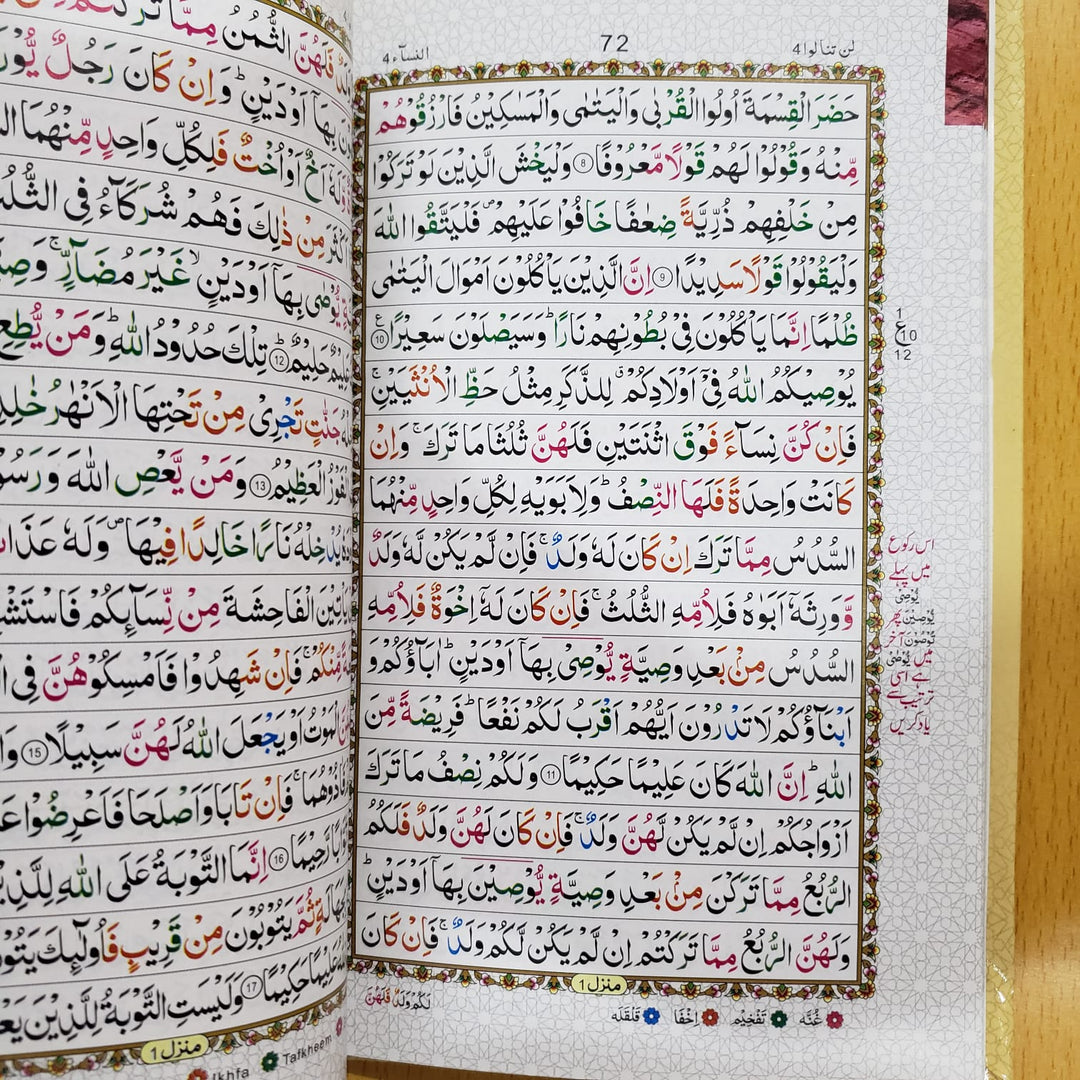 لن تنالوا 4
72
النسآء 4
حَضَرَ الْقِسْمَةَ اُولُوا الْقُرْبٰى وَالْيَتٰمٰى وَالْمَسٰكِيْنُ فَارْزُقُوْهُمْ
مِّنْهُ وَقُوْلُوْا لَهُمْ قَوْلًا مَّعْرُوْفًا ۝8 وَلْيَخْشَ الَّذِيْنَ لَوْ تَرَكُوْا
مِنْ خَلْفِهِمْ ذُرِّيَّةً ضِعٰفًا خَافُوْا عَلَيْهِمْ ۪ فَلْيَتَّقُوا اللّٰهَ
وَلْيَقُوْلُوْا قَوْلًا سَدِيْدًا ۝9 اِنَّ الَّذِيْنَ يَاْكُلُوْنَ اَمْوَالَ الْيَتٰمٰى
ظُلْمًا اِنَّمَا يَاْكُلُوْنَ فِيْ بُطُوْنِهِمْ نَارًا ؕ وَسَيَصْلَوْنَ سَعِيْرًا ۝10 ع
يُوْصِيْكُمُ اللّٰهُ فِيْٓ اَوْلَادِكُمْ ۗ لِلذَّكَرِ مِثْلُ حَظِّ الْاُنْثَيَيْنِ ۚ
فَاِنْ كُنَّ نِسَآءً فَوْقَ اثْنَتَيْنِ فَلَهُنَّ ثُلُثَا مَا تَرَكَ ۚ وَاِنْ
كَانَتْ وَاحِدَةً فَلَهَا النِّصْفُ ؕ وَلِاَبَوَيْهِ لِكُلِّ وَاحِدٍ مِّنْهُمَا
السُّدُسُ مِمَّا تَرَكَ اِنْ كَانَ لَهٗ وَلَدٌ ۚ فَاِنْ لَّمْ يَكُنْ لَّهٗ وَلَدٌ
وَّوَرِثَهٗٓ اَبَوٰهُ فَلِاُمِّهِ الثُّلُثُ ۚ فَاِنْ كَانَ لَهٗٓ اِخْوَةٌ فَلِاُمِّهِ
السُّدُسُ مِنْۢ بَعْدِ وَصِيَّةٍ يُّوْصِيْ بِهَآ اَوْ دَيْنٍ ؕ اٰبَآؤُكُمْ وَ
اَبْنَآؤُكُمْ لَا تَدْرُوْنَ اَيُّهُمْ اَقْرَبُ لَكُمْ نَفْعًا ؕ فَرِيْضَةً مِّنَ
اللّٰهِ ؕ اِنَّ اللّٰهَ كَانَ عَلِيْمًا حَكِيْمًا ۝11 وَلَكُمْ نِصْفُ مَا تَرَكَ
اَزْوَاجُكُمْ اِنْ لَّمْ يَكُنْ لَّهُنَّ وَلَدٌ ۚ فَاِنْ كَانَ لَهُنَّ وَلَدٌ فَلَكُمُ
الرُّبُعُ مِمَّا تَرَكْنَ مِنْۢ بَعْدِ وَصِيَّةٍ يُّوْصِيْنَ بِهَآ اَوْ دَيْنٍ ؕ
وَلَهُنَّ الرُّبُعُ مِمَّا تَرَكْتُمْ اِنْ لَّمْ يَكُنْ لَّكُمْ وَلَدٌ ۚ فَاِنْ كَانَ
منزل 1
لَكُمْ وَلَدٌ فَلَهُنَّ
غُنَّه تَفْخِيْم اِخْفَا قَلْقَلَه
1
ع 10
12
اس رکوع
میں پہلے
يُوْصِيْ
يُوْصِيْنَ پھر
تُوْصُوْنَ آخر
میں يُوْصٰى
ہے اسی
ترتیب سے
یاد کریں
فَلَهُنَّ الثُّمُنُ مِمَّا تَرَكْتُمْ
بِهَآ اَوْ دَيْنٍ ؕ وَاِنْ كَانَ رَجُلٌ يُّوْرَ
وَّلَهٗٓ اَخٌ اَوْ اُخْتٌ فَلِكُلِّ وَاحِدٍ مِّنْهُمَا
مِنْ ذٰلِكَ فَهُمْ شُرَكَآءُ فِي الثُّلُ
يُّوْصٰى بِهَآ اَوْ دَيْنٍ ۙ غَيْرَ مُضَآرٍّ ۚ
حَلِيْمٌ ۝12 تِلْكَ حُدُوْدُ اللّٰهِ ؕ وَمَنْ يُّطِعِ
جَنّٰتٍ تَجْرِيْ مِنْ تَحْتِهَا الْاَنْهٰرُ خٰلِدِ
الْفَوْزُ الْعَظِيْمُ ۝13 وَمَنْ يَّعْصِ اللّٰهَ وَرَسُوْ
يُدْخِلْهُ نَارًا خَالِدًا فِيْهَا ۪ وَلَهٗ عَذَا
يَاْتِيْنَ الْفَاحِشَةَ مِنْ نِّسَآئِكُمْ فَاسْتَشْ
مِّنْكُمْ ۚ فَاِنْ شَهِدُوْا فَاَمْسِكُوْهُنَّ فِي
الْمَوْتُ اَوْ يَجْعَلَ اللّٰهُ لَهُنَّ سَبِيْلًا ۝15
فَاٰذُوْهُمَا ۚ فَاِنْ تَابَا وَاَصْلَحَا فَاَعْرِضُوْا
رَّحِيْمًا ۝16 اِنَّمَا التَّوْبَةُ عَلَى اللّٰهِ لِلَّذِيْ
بِجَهَالَةٍ ثُمَّ يَتُوْبُوْنَ مِنْ قَرِيْبٍ فَاُولٰٓئِكَ يَتُوْ
عَلِيْمًا حَكِيْمًا ۝17 وَلَيْسَتِ التَّوْبَةُ لِلَّذِيْنَ
منزل 1
Ikhfa Tafkheem